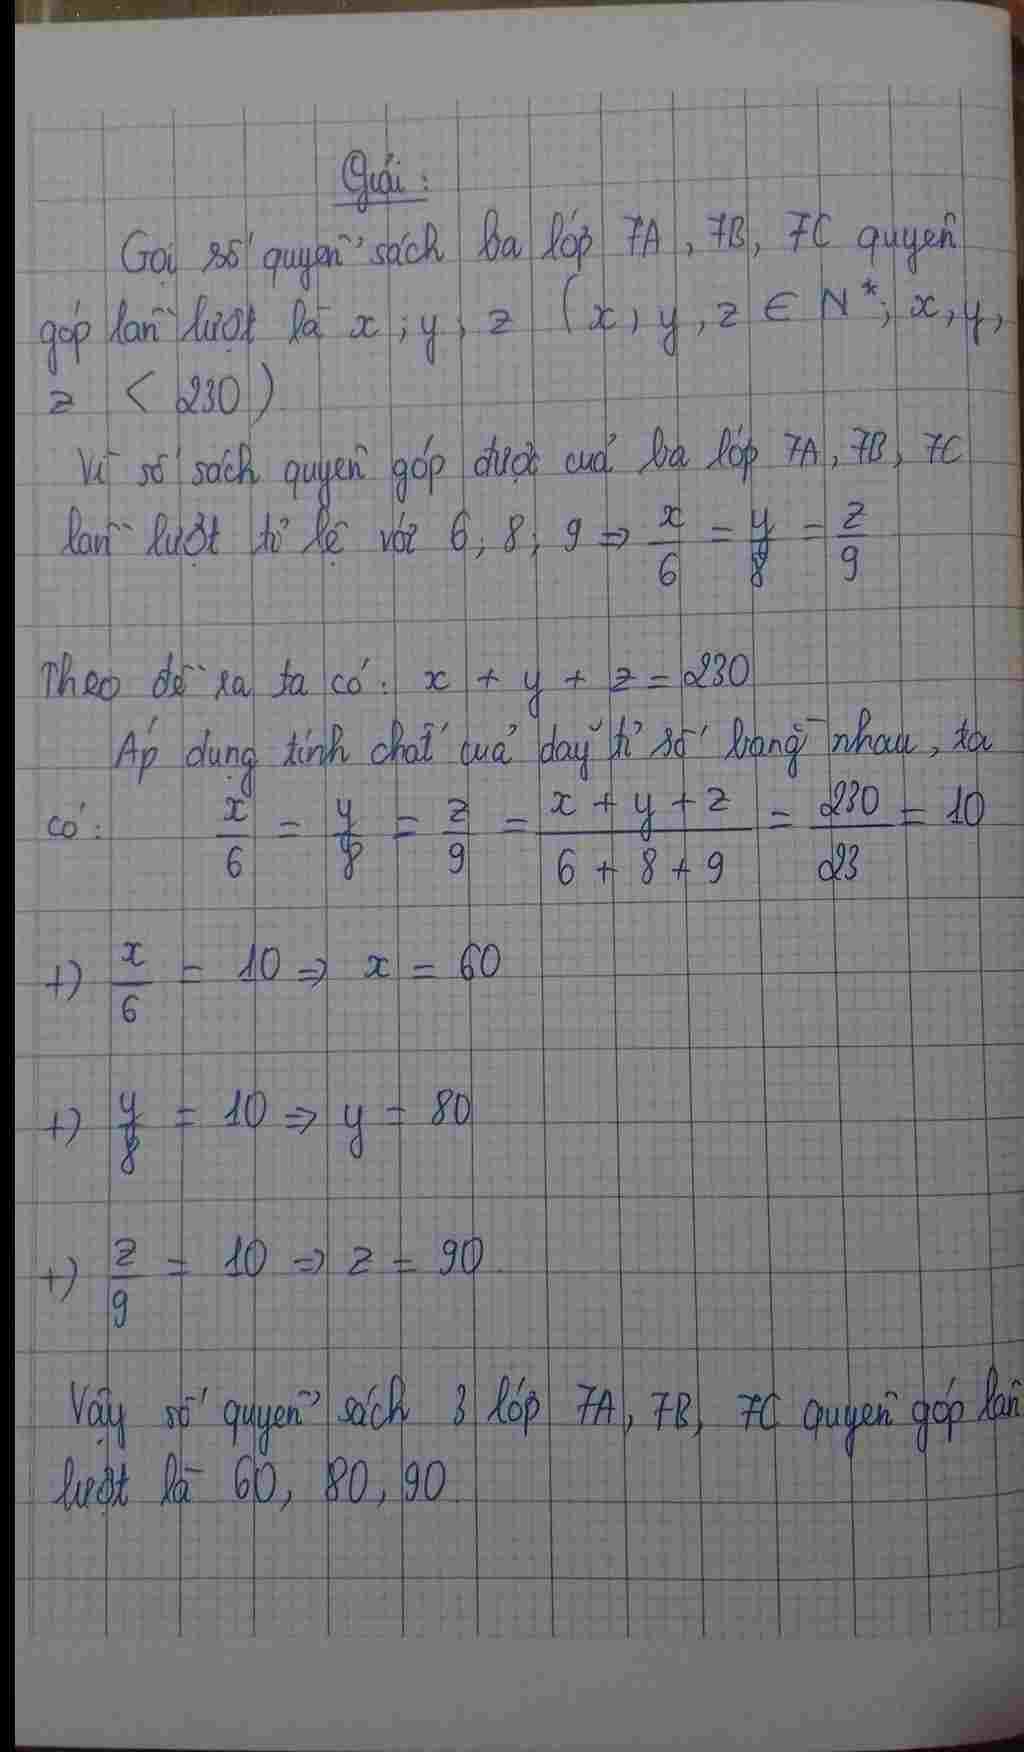 Giải:
Gọi số quyển sách ba lớp 7A, 7B, 7C quyên
góp lần lượt là x; y; z (x, y, z ∈ N*; x, y,
z < 230)
Vì số sách quyên góp được của ba lớp 7A, 7B, 7C
lần lượt tỉ lệ với 6; 8; 9 => x/6 = y/8 = z/9
Theo đề ra ta có: x + y + z = 230
Áp dụng tính chất của dãy tỉ số bằng nhau, ta
có: x/6 = y/8 = z/9 = (x + y + z)/(6 + 8 + 9) = 230/23 = 10
+) x/6 = 10 => x = 60
+) y/8 = 10 => y = 80
+) z/9 = 10 => z = 90
Vậy số quyển sách 3 lớp 7A, 7B, 7C quyên góp lần
lượt là 60, 80, 90